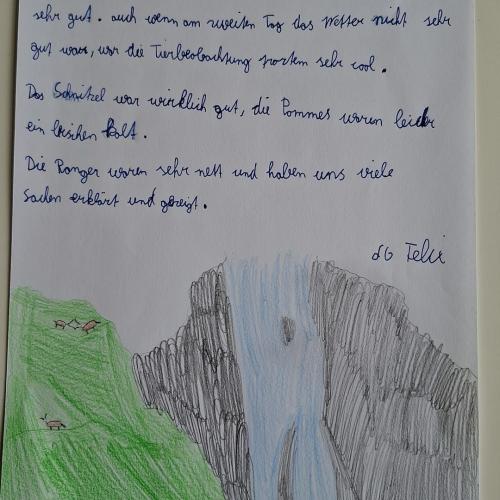 sehr gut. auch wenn am zweiten Tag das Wetter nicht sehr
gut war, war die Tierbeobachtung trotzem sehr cool.
Das Schnitzel war wirklich gut, die Pommes waren leider
ein bischen kalt.
Die Ranger waren sehr nett und haben uns viele
Sachen erklärt und gezeigt.
LG Felix